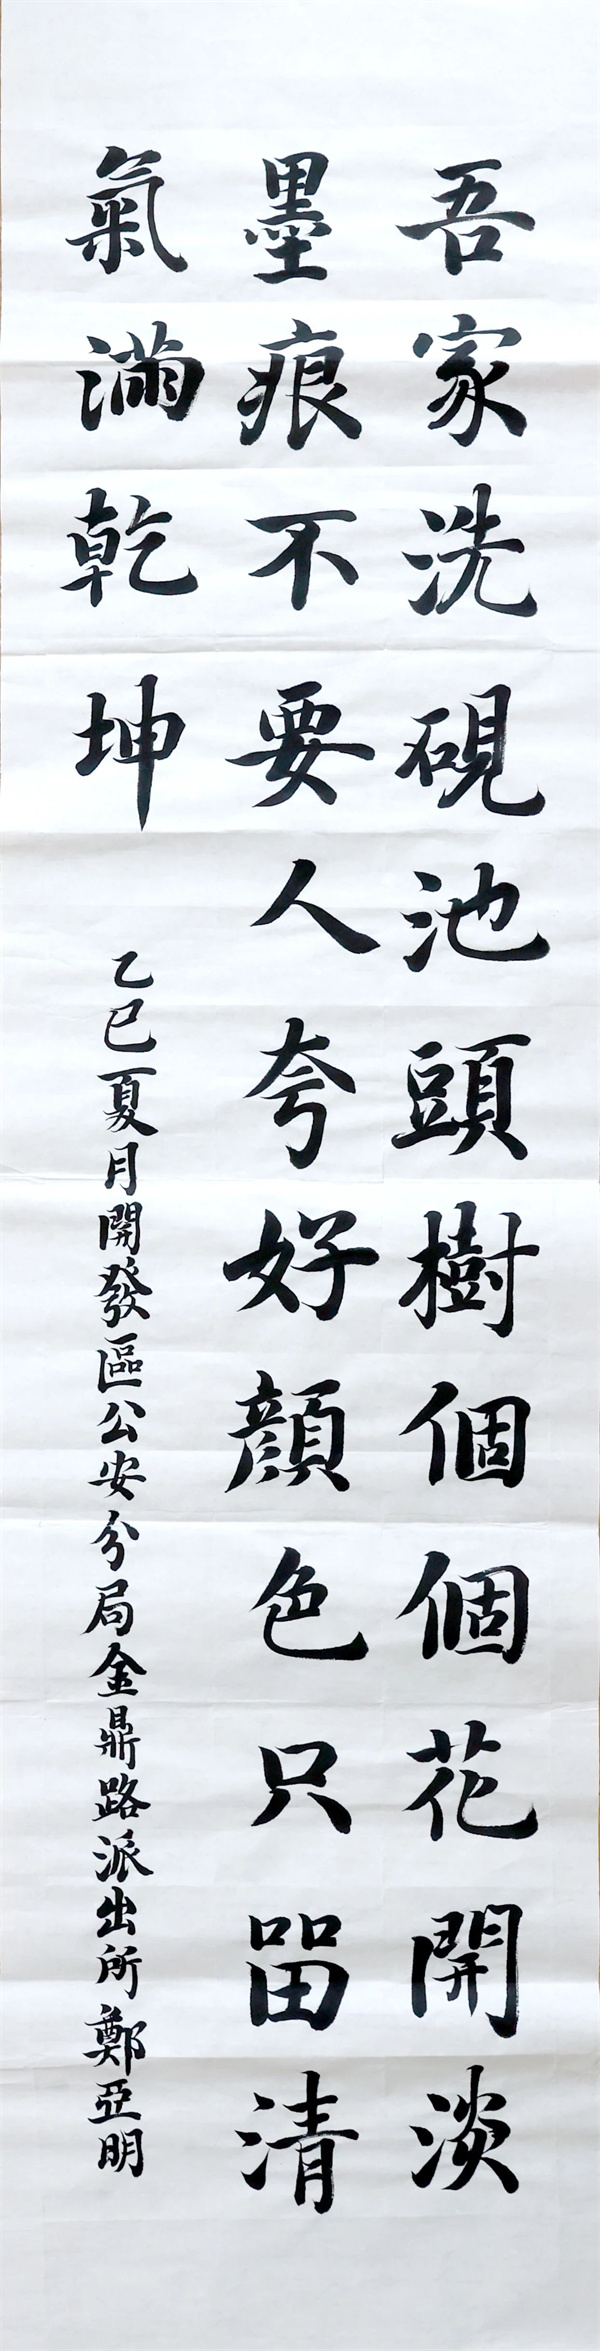 吾家洗硯池頭樹個個花開淡
墨痕不要人夸好顏色只畱清
氣滿乾坤
乙巳夏月開發區公安分局金鼎路派出所鄭亞明